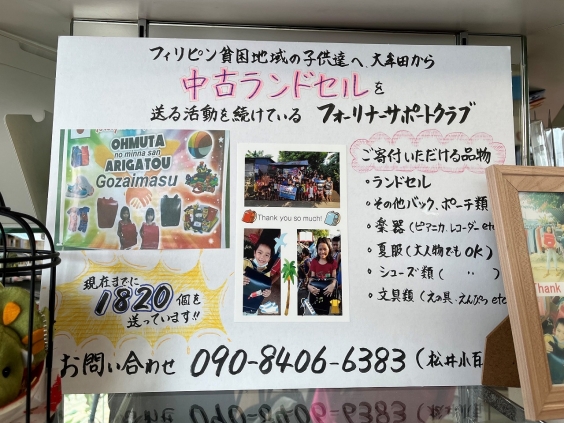 フィリピン貧困地域の子供達へ、大牟田から
中古ランドセルを
送る活動を続けている フォーリナーサポートクラブ
OHMUTA
no minna san
ARIGATOU
Gozaimasu
Thank you so much!
ご寄付いただける品物
・ランドセル
・その他バック、ポーチ類
・楽器(ピアニカ、レコーダー etc
・夏服(大人物でもOK)
・シューズ類( 〃 )
・文具類(えの具、えんぴつ etc
現在までに
1820個を
送っています!!
お問い合わせ 090-8406-6383(松井小百
Thank